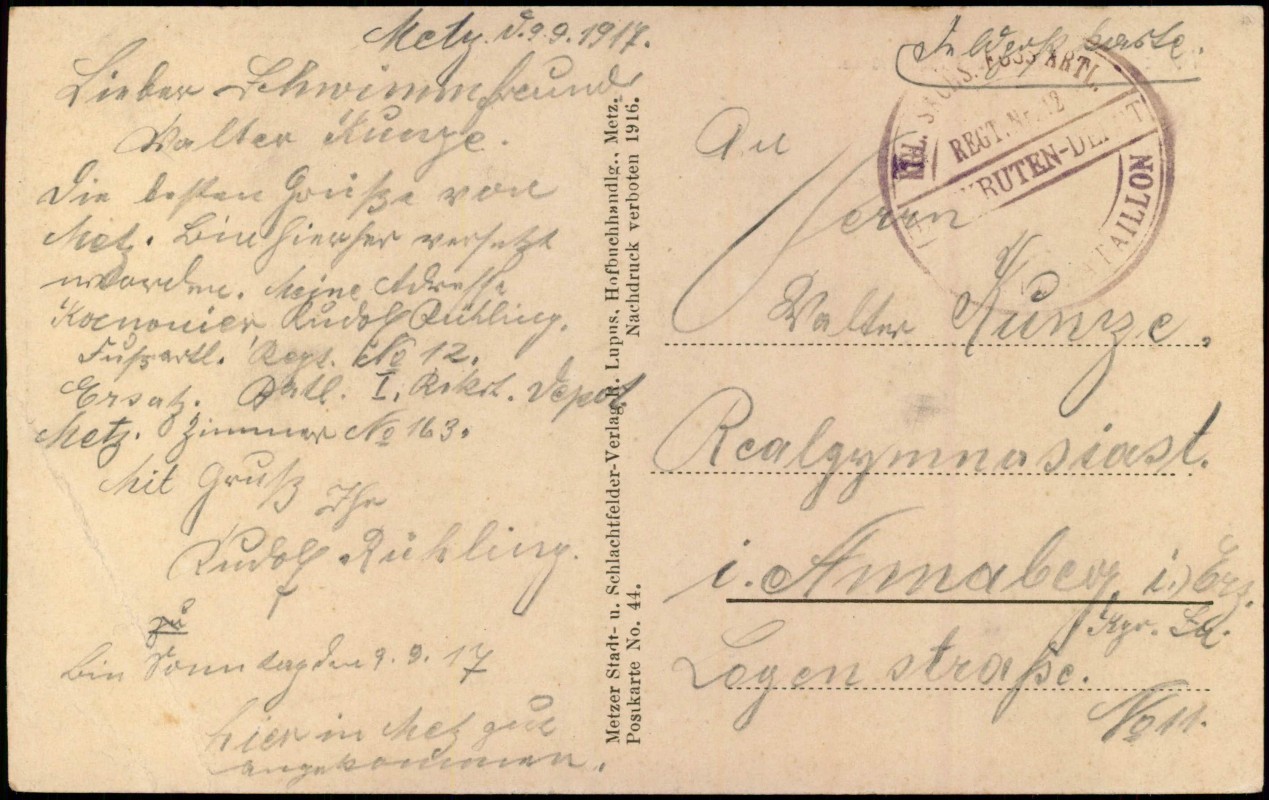 Metz. d. 9.9.1917.
Lieber Schwimmfreund
Walter Kunze.
Die besten Grüße von
Metz. Bin hierher versetzt
worden. Meine Adresse
Kanonier Rudolf Rühling.
Fußartl. Regt. No 12.
Ersatz. Batl. I, Rekrt. Depot
Metz. Zimmer No 163.
Mit Gruß
Ihr
Rudolf Rühling.
zu
bin Sonntag den 9. 9. 17
hier in Metz gut
angekommen.
Metzer Stadt- u. Schlachtfelder-Verlag R. Lupus, Hofbuchhandlg., Metz.
Postkarte No. 44. Nachdruck verboten 1916.
Feldpostkarte.
KGL. SÄCHS. FUSSARTL.
REGT. Nr. 12
REKRUTEN-DEPOT
BATAILLON
An
Herrn
Walter Kunze.
Realgymnasiast.
i. Annaberg i. Erz.
Kgr. Sa.
Logenstraße.
No 11.